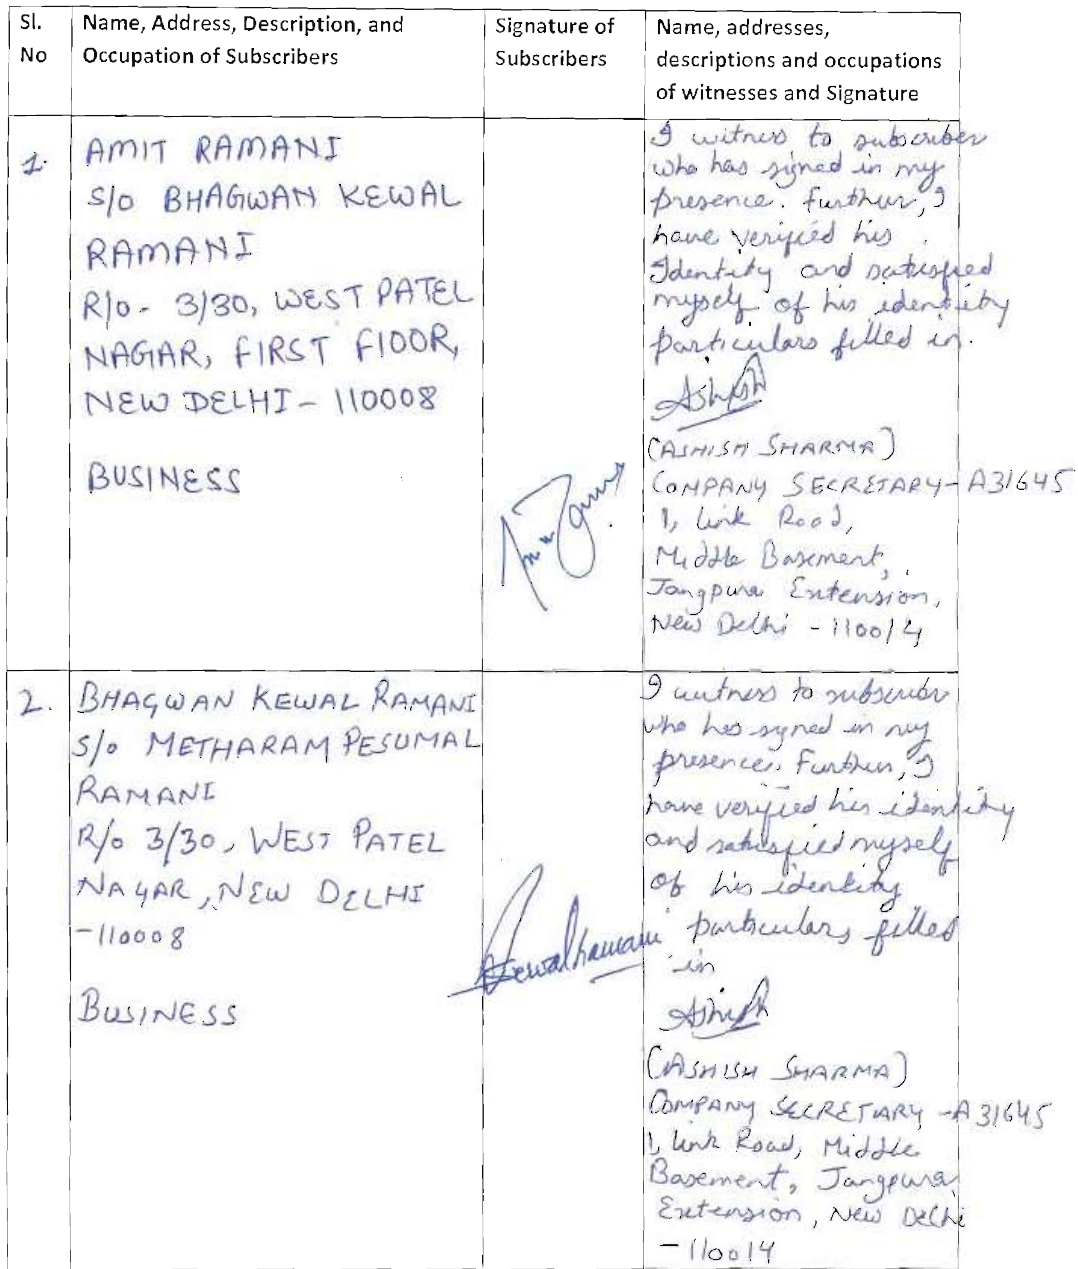 Sl. No
Name, Address, Description, and Occupation of Subscribers
Signature of Subscribers
Name, addresses, descriptions and occupations of witnesses and Signature
1.
AMIT RAMANI
S/O BHAGWAN KEWAL
RAMANI
R/O- 3/30, WEST PATEL
NAGAR, FIRST FLOOR,
NEW DELHI - 110008
BUSINESS
I witness to subscriber
who has signed in my
presence. Further, I
have verified his
Identity and satisfied
myself of his identity
particulars filled in.
Ashish
(ASHISH SHARMA)
COMPANY SECRETARY - A31645
1, Link Road,
Middle Basement,
Jangpura Extension,
New Delhi - 110014
2.
BHAGWAN KEWAL RAMANI
S/o METHARAM PESUMAL
RAMANI
R/o 3/30, WEST PATEL
NAGAR, NEW DELHI
-110008
BUSINESS
Kewalramani
I witness to subscriber
who has signed in my
presence. Further, I
have verified his identity
and satisfied myself
of his identity
particulars filled
in
Ashish
(ASHISH SHARMA)
COMPANY SECRETARY - A31645
1, Link Road, Middle
Basement, Jangpura
Extension, New Delhi
-110014